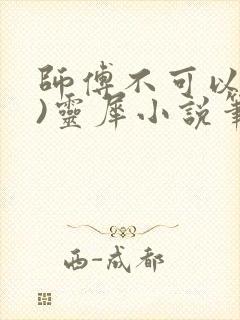 師傅不可以
)靈犀小說筆
西-成都